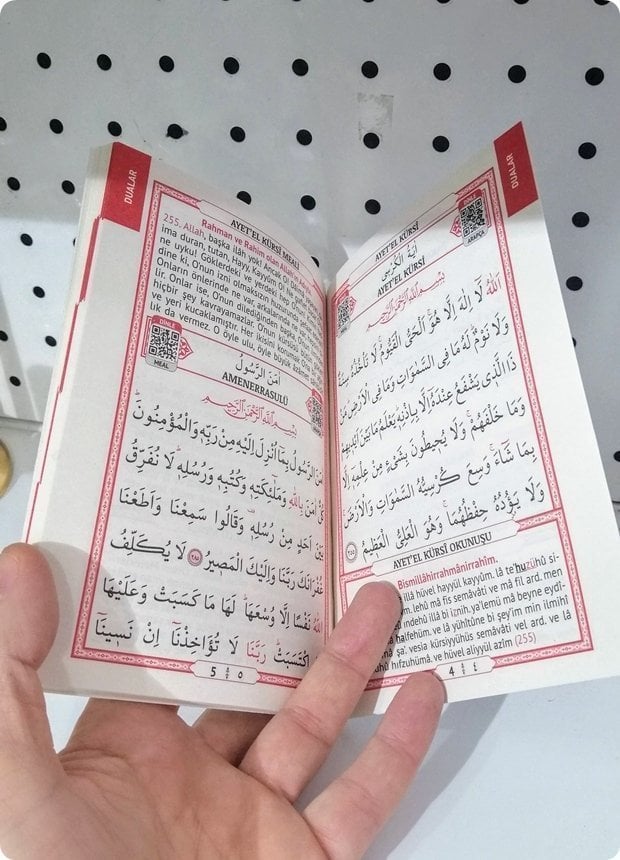 DUALAR
AYET'EL KÜRSİ
ARAPÇA
اٰيَةُ الْكُرْسِىِّ
AYET'EL KÜRSİ
بِسْمِ اللّٰهِ الرَّحْمٰنِ الرَّحِيمِ
اَللّٰهُ لَا اِلٰهَ اِلَّا هُوَۚ اَلْحَىُّ الْقَيُّومُۚ لَا تَأْخُذُهُ سِنَةٌ
وَلَا نَوْمٌۜ لَهُ مَا فِى السَّمٰوَاتِ وَمَا فِى الْاَرْضِۜ مَنْ
ذَا الَّذٖى يَشْفَعُ عِنْدَهُٓ اِلَّا بِاِذْنِهٖۜ يَعْلَمُ مَا بَيْنَ اَيْدٖيهِمْ
وَمَا خَلْفَهُمْۚ وَلَا يُحٖيطُونَ بِشَىْءٍ مِنْ عِلْمِهٖٓ اِلَّا
بِمَا شَٓاءَۚ وَسِعَ كُرْسِيُّهُ السَّمٰوَاتِ وَالْاَرْضَۚ
وَلَا يَؤُ۫دُهُ حِفْظُهُمَاۚ وَهُوَ الْعَلِىُّ الْعَظٖيمُ ﴿٢٥٥﴾
AYET'EL KÜRSİ OKUNUŞU
Bismillâhirrahmânirrahîm.
illâ hüvel hayyül kayyûm. lâ te'huzühû si-
lehû mâ fis semâvâti ve mâ fil ard. men
indehû illâ bi iznih. ya'lemü mâ beyne eydî-
halfehüm. ve lâ yühîtûne bi şey'im min ilmihî
şa'. vesia kürsiyyühüs semâvâti vel ard. ve lâ
hıfzuhümâ. ve hüvel aliyyül azîm (255)
4 ٤
DUALAR
AYET'EL KÜRSİ MEALİ
Rahman ve Rahim olan Allah'ın
255. Allah, başka ilah yok! Ancak O
ima duran, tutan, Hayy, Kayyûm O!
ne uyku! Göklerdeki ve yerdeki hep O'nun
dine ki O'nun izni olmaksızın huzurunda
Onların önlerinde ne var, arkalarında ne
lir. Onlar ise, O'nun dilediğinden başka
hiçbir şey kavrayamazlar. O'nun kürsüsü
ve yeri kucaklamıştır. Her ikisini korumak
lık da vermez. O öyle ulu, öyle büyük
DİNLE
MEAL
اٰمَنَ الرَّسُولُ
AMENERRASULÜ
بِسْمِ اللّٰهِ الرَّحْمٰنِ الرَّحِيمِ
اٰمَنَ الرَّسُولُ بِمَٓا اُنْزِلَ اِلَيْهِ مِنْ رَبِّهٖ وَالْمُؤْمِنُونَۜ
كُلٌّ اٰمَنَ بِاللّٰهِ وَمَلٰٓئِكَتِهٖ وَكُتُبِهٖ وَرُسُلِهٖۜ لَا نُفَرِّقُ
بَيْنَ اَحَدٍ مِنْ رُسُلِهٖ۠ وَقَالُوا سَمِعْنَا وَاَطَعْنَا
غُفْرَانَكَ رَبَّنَا وَاِلَيْكَ الْمَصٖيرُ ﴿٢٨٥﴾ لَا يُكَلِّفُ
اللّٰهُ نَفْسًا اِلَّا وُسْعَهَاۜ لَهَا مَا كَسَبَتْ وَعَلَيْهَا
مَا اكْتَسَبَتْۜ رَبَّنَا لَا تُؤَاخِذْنَٓا اِنْ نَسٖينَٓا
5 ٥